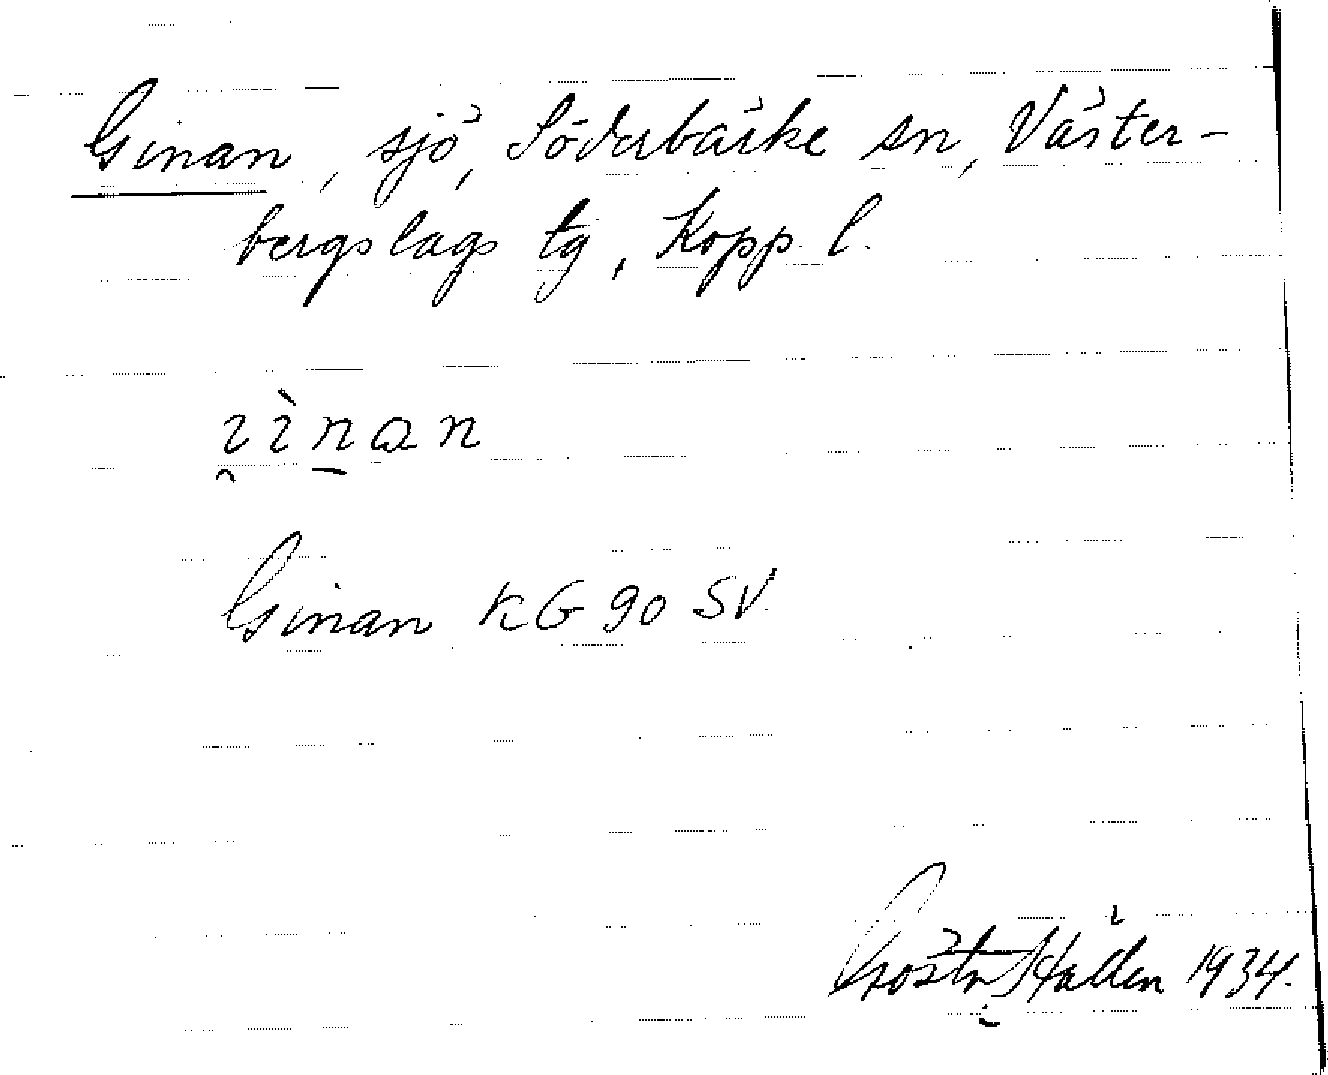 Ginan, sjö, Söderbärke sn, Väster-
bergslags tg, Kopp. l.
ı̯ìn̠an
Ginan KG 90 SV
Gösta Hallén 1934.